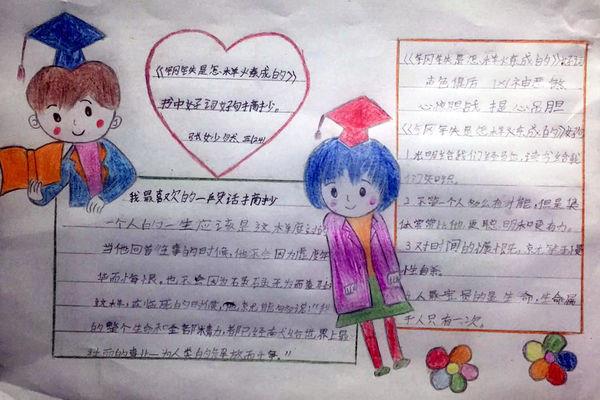 《钢铁是怎样炼成的》
我中好词好句摘抄。
我最喜欢的一段话摘抄
一个人的一生应该是这样度过的
当他回首往事的时候，他不会因为虚度年
华而悔恨。也不会因为碌碌无为而羞耻
这样，在临死的时候，他就能够说："我
的整个生命和全部精力，都已经献给世界上最
壮丽的事业—为人类的解放而斗争。"
《钢铁是怎样炼成的》好词
声色俱厉 凶神恶煞
心惊胆战 提心吊胆
《钢铁是怎样炼成的》
1.光明给我们经验，读书给我
们知识。
2.不管一个人多么有才能，但是集
体常常比他更聪明和更有力。
3.对时间的慷慨，就等于慢
性自杀。
人最宝贵的是生命，生命属
于人只有一次。